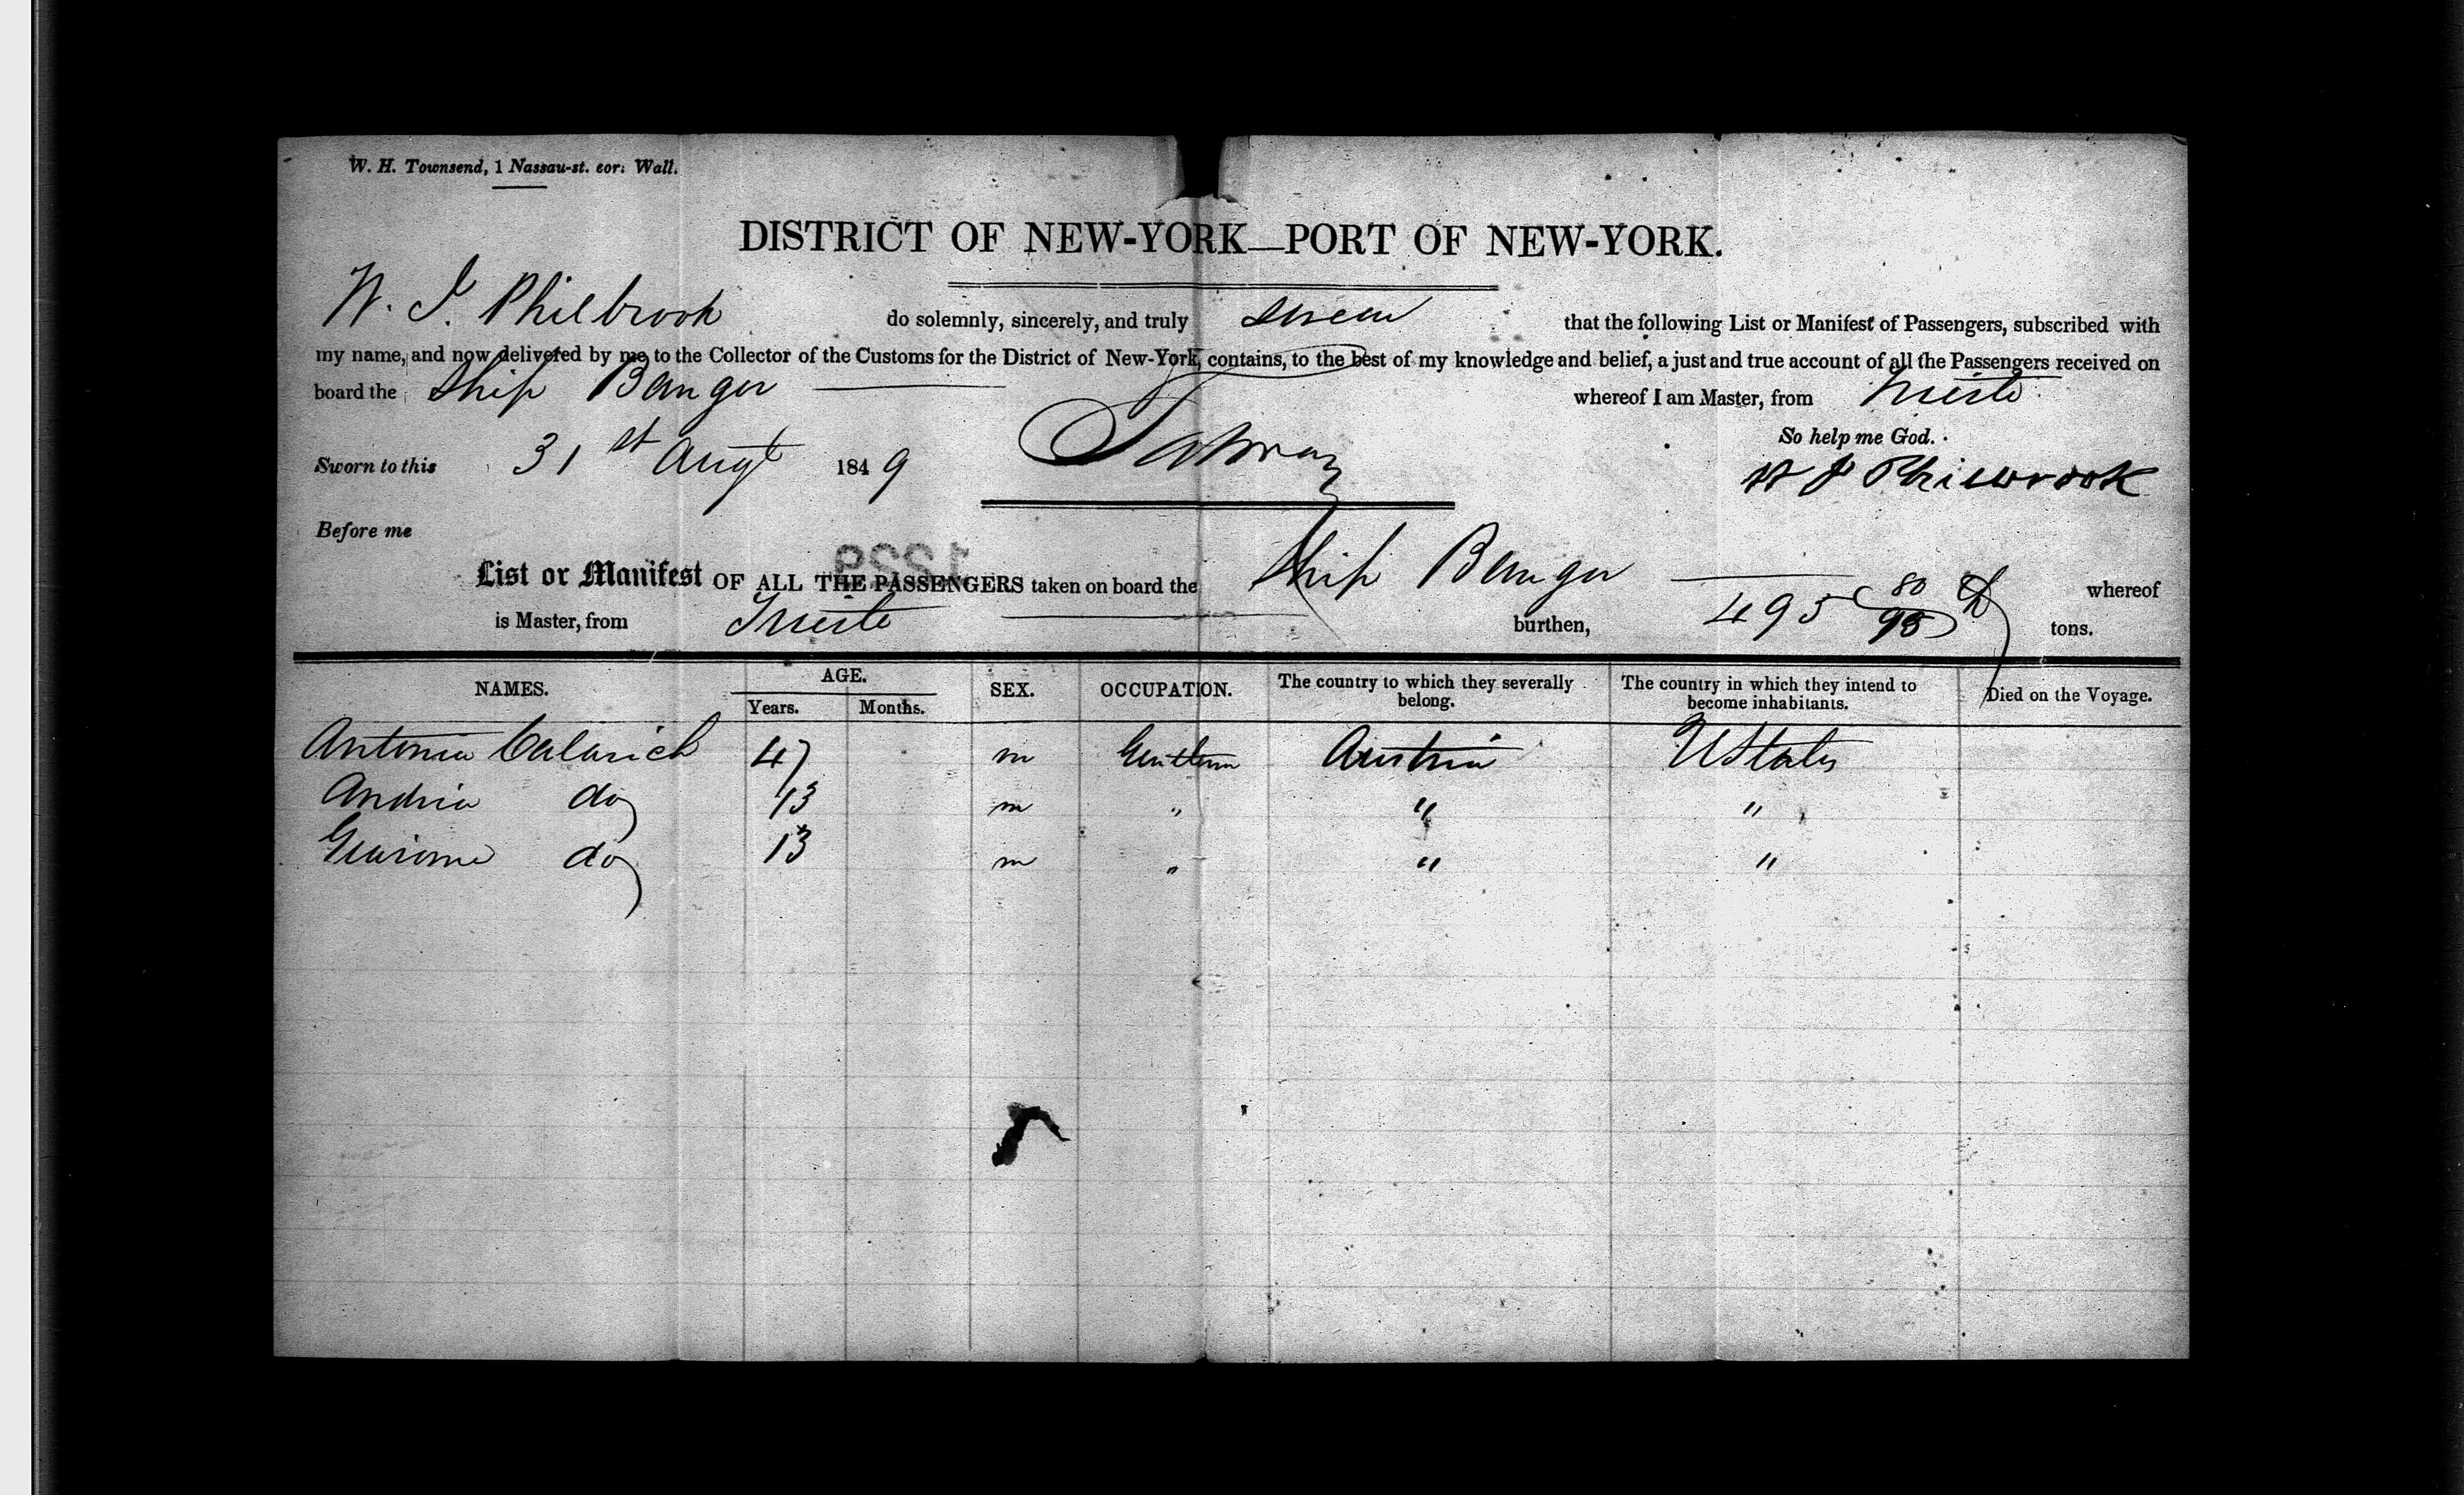 W. H. Townsend, 1 Nassau-st. cor. Wall.
DISTRICT OF NEW-YORK—PORT OF NEW-YORK.
W. J. Philbrook do solemnly, sincerely, and truly swear that the following List or Manifest of Passengers, subscribed with
my name, and now delivered by me to the Collector of the Customs for the District of New-York, contains, to the best of my knowledge and belief, a just and true account of all the Passengers received on
board the Ship Bangor whereof I am Master, from Trieste
So help me God.
Sworn to this 31st Augt 1849
W J Philbrook
Before me
1229
List or Manifest OF ALL THE PASSENGERS taken on board the Ship Bangor whereof
is Master, from Trieste burthen, 495 80/95 tons.
NAMES. AGE. SEX. OCCUPATION. The country to which they severally belong. The country in which they intend to become inhabitants. Died on the Voyage.
Years. Months.
Antonio Calarich 47 m Gentlem Austria UStates
Andria do 13 m " " "
Gearome do 13 m " " "